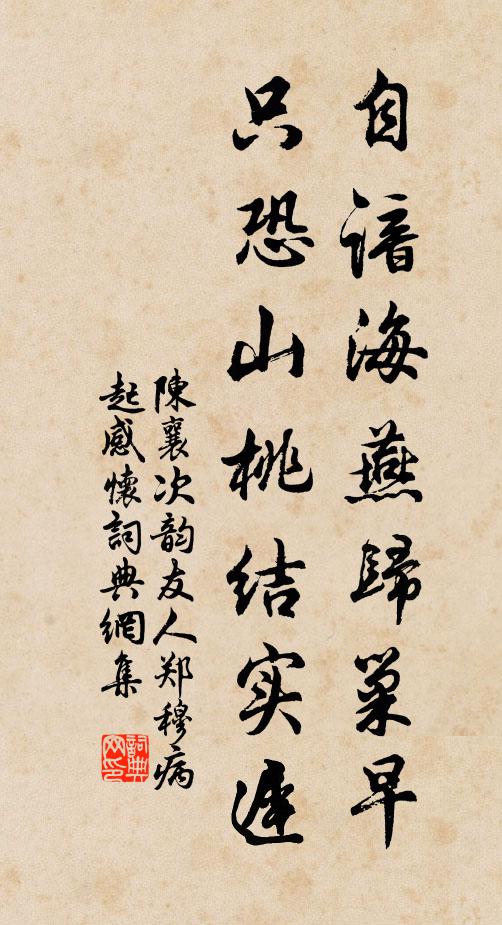 自谙海燕歸巢早
只恐山桃结实遲
陳襄次韵友人郑穆病
起感懷詞典網集
詞典
网印